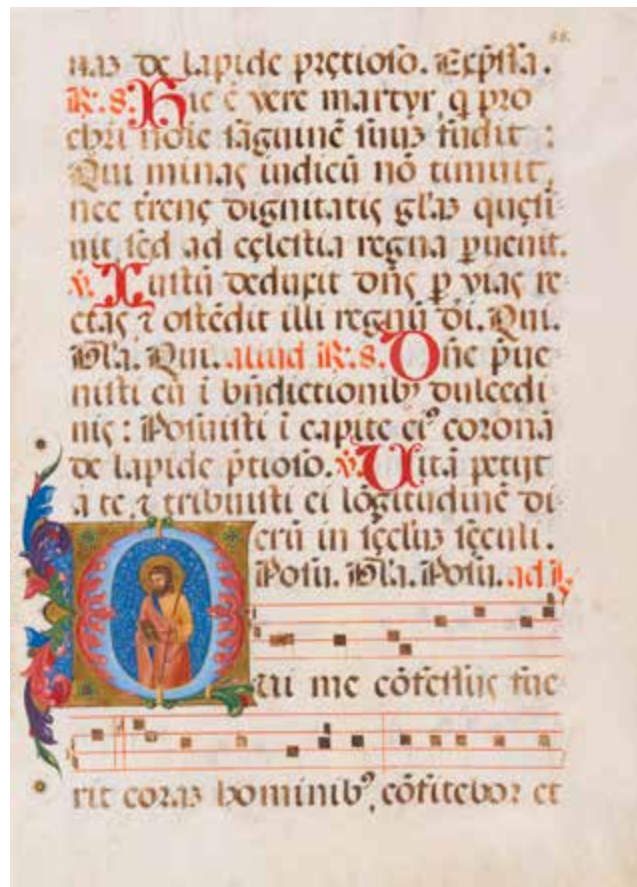 naʒ de lapide pręctioso. Ecp̄ssa.
R̃. 8. Hic ē vere martyr, q̄ pro
chri noīe sāguinē suuʒ fudit :
Qui minaς iudicū nō timuit,
nec trēnę dignitatis gl'aʒ quęsi
uit, sed ad cęlestia regna ꝑuenit.
℣. Iustū deduxit dn̄s ꝑ vias re
ctas ⁊ ostēdit illi regnū di. Qui.
Gl'a. Qui. aliud R̃. 8. Dn̄e p̄ue
nisti eū ī bn̄dictionibꝰ dulcedi
nis : Posuisti ī capite eiꝰ coronā
de lapide p̄tioso. ℣. Uitā petijt
a te, ⁊ tribuisti ei lōgitudinē di
erū in sęcluʒ sęculi.
Posu. Gl'a. Posu. ad
Qui me cōfessus fue
rit coraʒ hominibꝰ, cōfitebor et